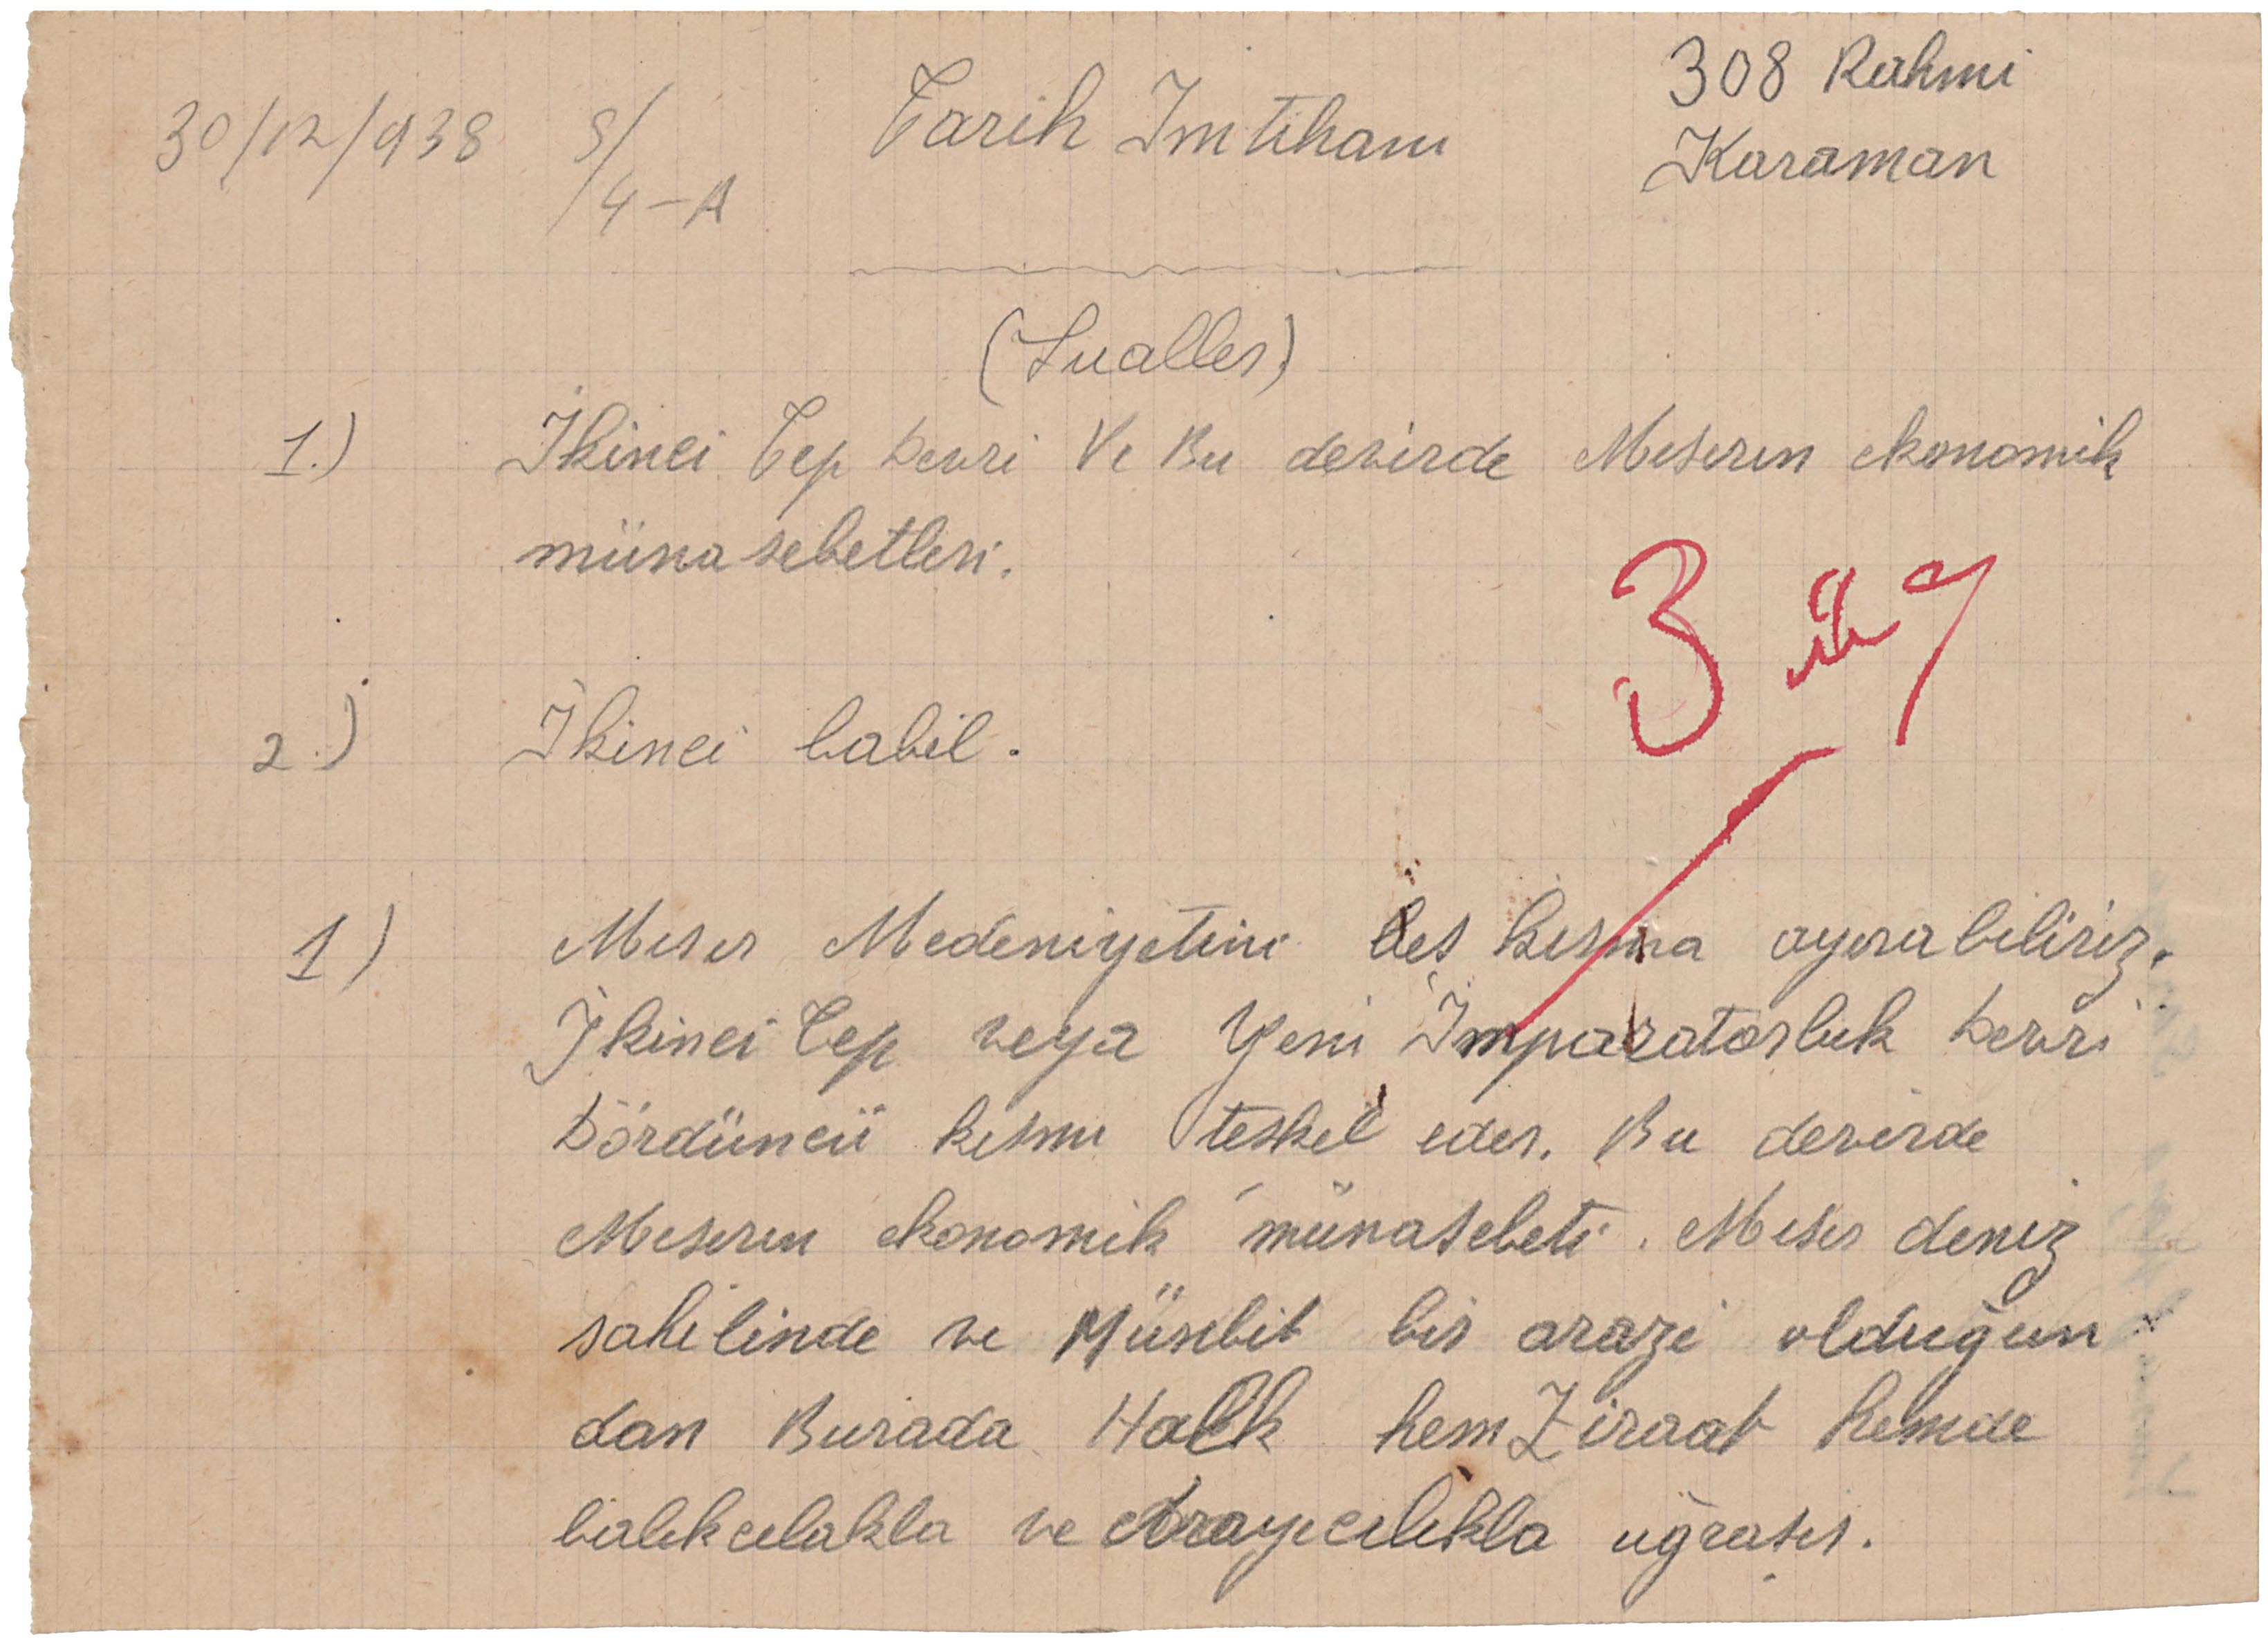 30/12/938 S/4-A Tarih Imtihanı 308 Rahmi
Karaman
(Sualler)
1.) İkinci Tep Devri Ve Bu devirde Mısırın ekonomik
münasebetleri.
3
2.) İkinci babil.
1) Mısır Medeniyetini beş kısma ayırabiliriz.
İkinci Tep veya Yeni İmparatorluk Devri
Dördüncü kısmı teşkil eder. Bu devirde
Mısırın ekonomik münasebeti. Mısır deniz
sahilinde ve Münbit bir arazi olduğun
dan Burada Halk hem Ziraat hemde
balıkcılakla ve uğraşır.